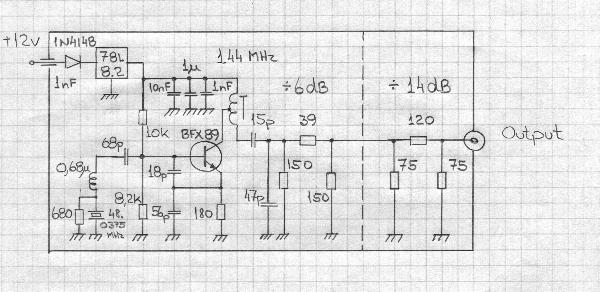 +12v
1N4148
78L
8.2
1nF
10nF
1µ
1nF
144 MHz
÷6dB
÷ 14dB
10k
BFX89
T
15p
39
120
Output
68p
0,68µ
18p
150
150
75
75
680
48.
0375
MHz
8,2k
56p
180
47p